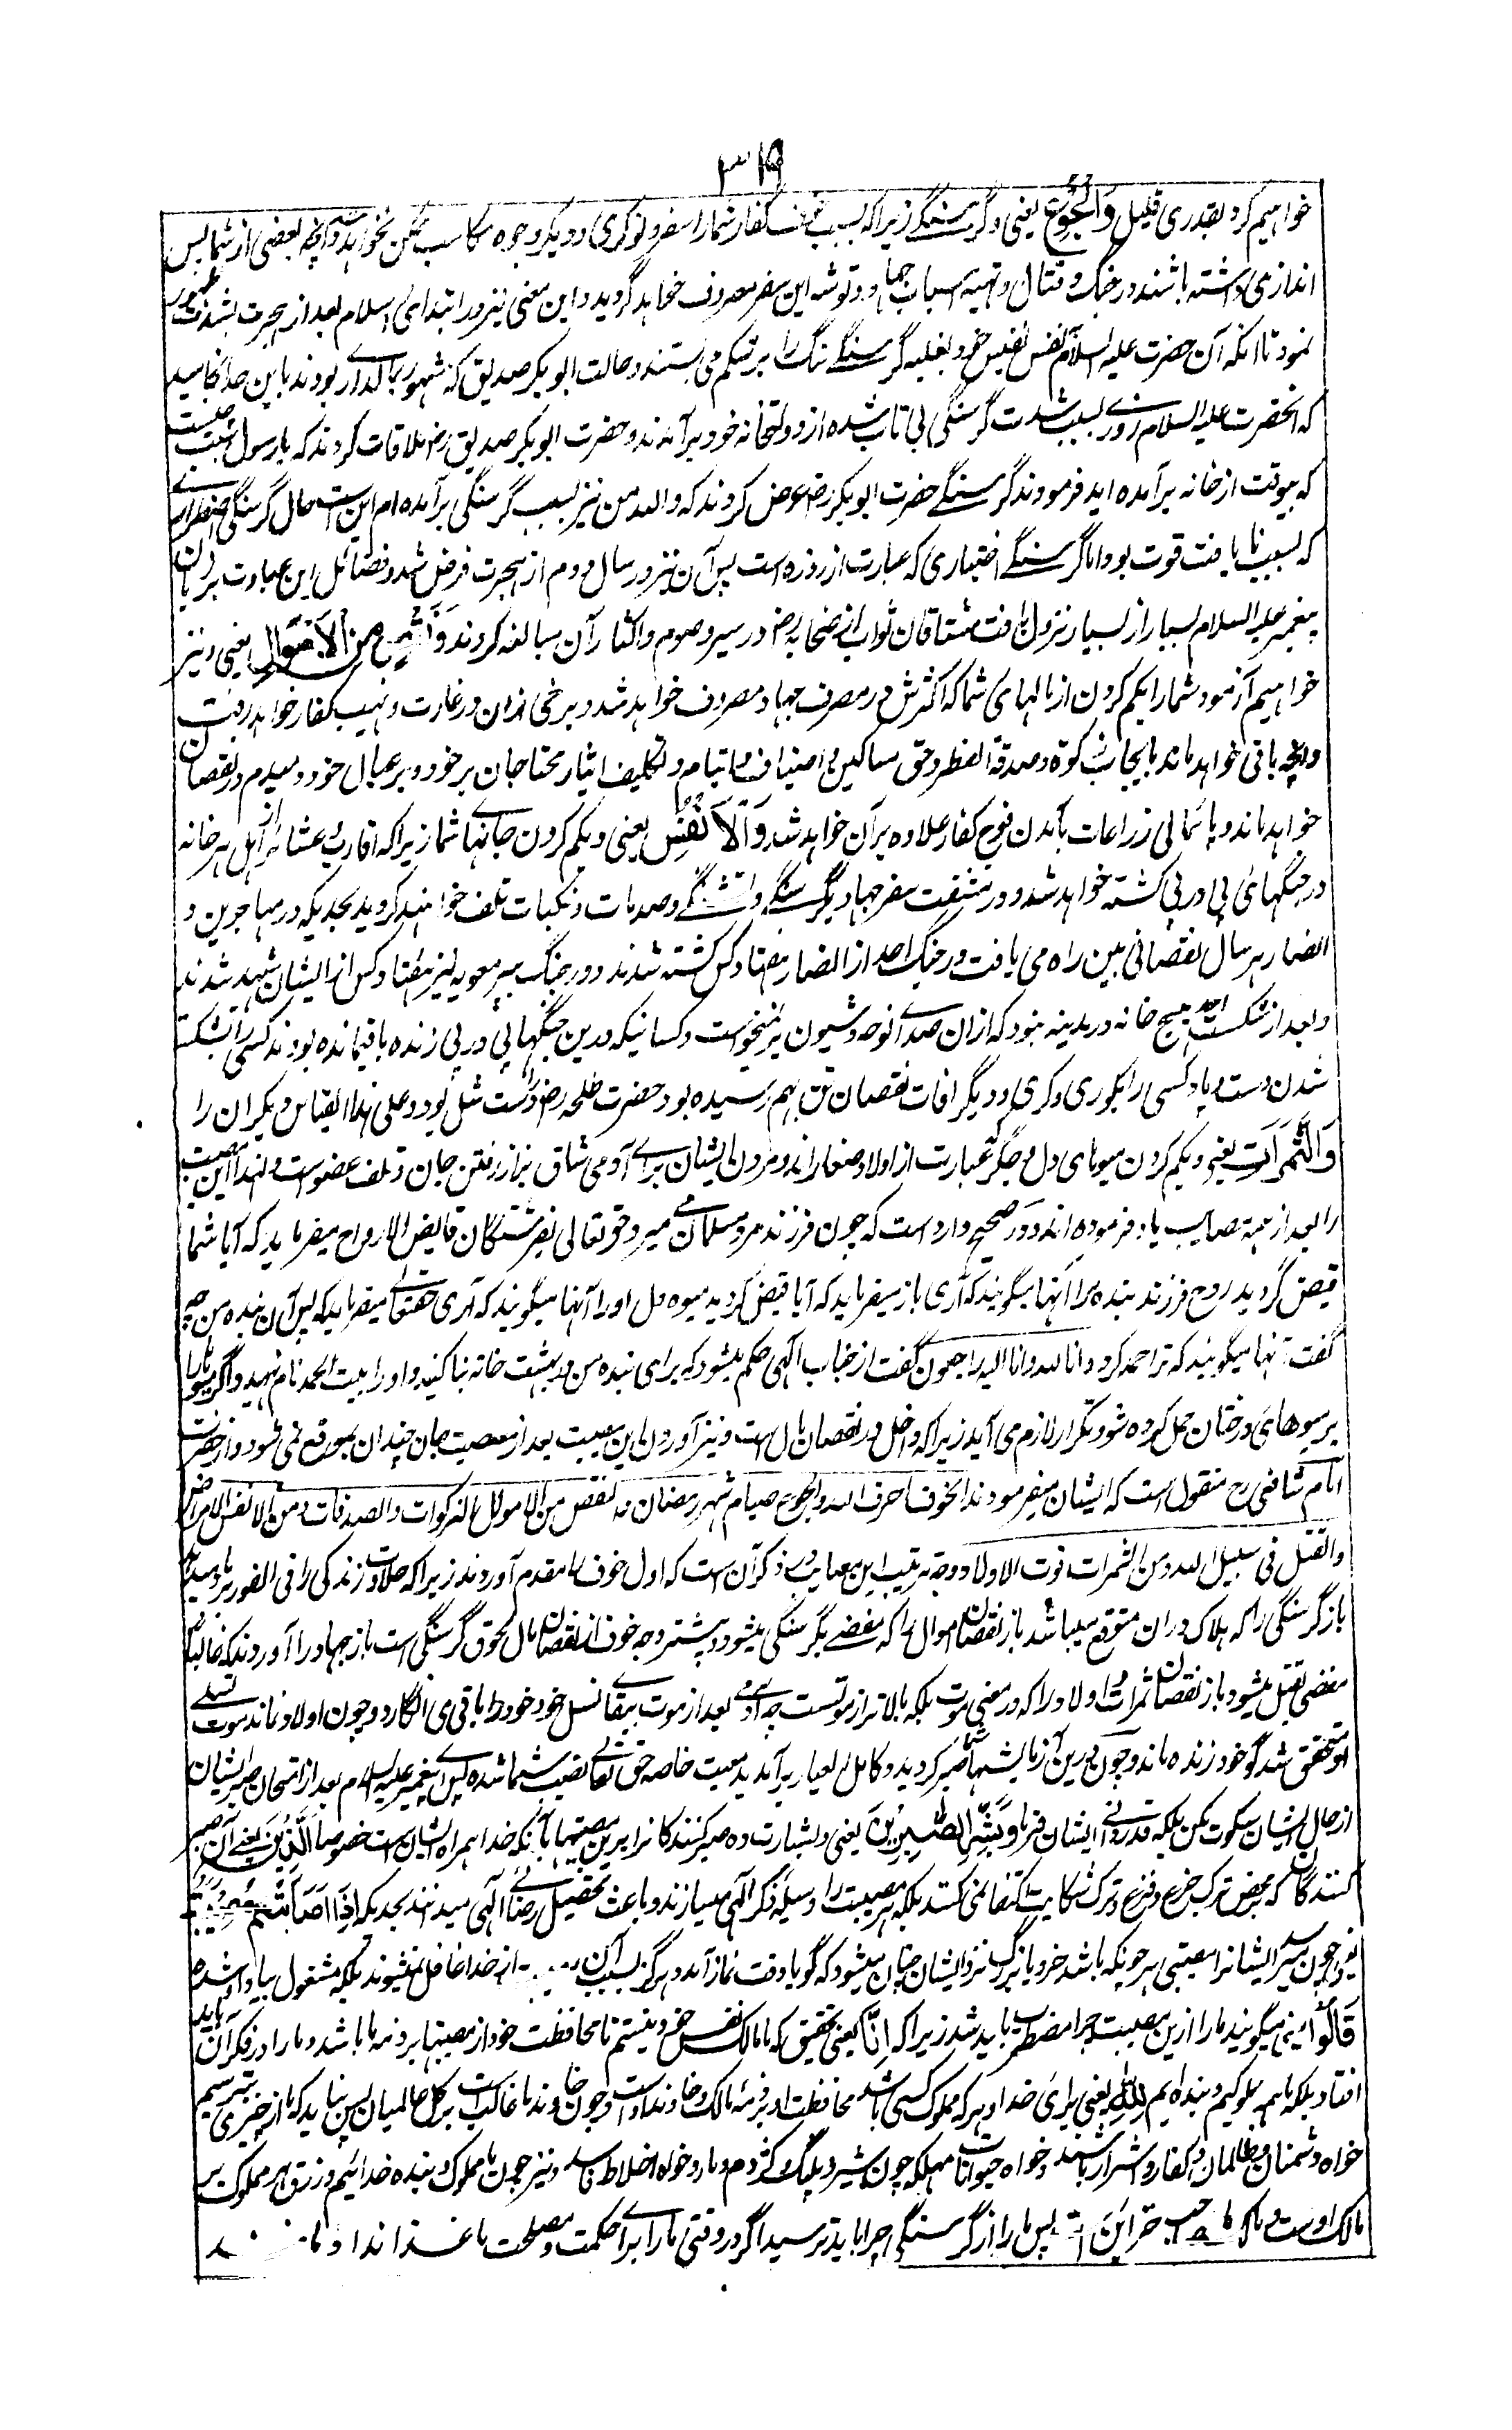 ۳۱۹
خواہیم کرد بقدری قلیل وَالْجُوْعِ یعنی و گرسنگے زیراکہ بسبب خوف کفار شمارا سفر و نوکری و دیگر وجوہ مکاسب ممکن نخواہد شد و آنچہ بعضی از شما پس
اندازی داشتہ باشند در جنگ و قتال و تہیہ اسباب جہاد و توشہ این سفر مصروف خواہد گردید و این معنی نیز در ابتدای اسلام بعد از ہجرت بشدت ظہور
نمود تا آنکہ آن حضرت علیہ السلام بنفس نفیس خود بغلبہ گرسنگے سنگ را بر شکم می بستند و حالت ابوبکر صدیق کہ مشہور بمالداری بودند باین حد انجامید
کہ آنحضرت علیہ السلام روزے بسبب شدت گرسنگی بی تاب شدہ از دولتخانہ خود برآمدند و حضرت ابوبکر صدیق رض ملاقات کردند کہ یا رسول اللہ چیست
کہ بیوقت از خانہ برآمدہ اید فرمودند گرسنگے حضرت ابوبکر رض عرض کردند کہ واللہ من نیز بسبب گرسنگی برآمدہ ام این است حال گرسنگی اضطراری
کہ بسبب نایافت قوت بود و اما گرسنگے اختیاری کہ عبارت از روزہ است پس آن نیز در سال دوم از ہجرت فرض شد و فضائل این عبادت بر زبان
پیغمبر علیہ السلام بسیار از بسیار نزول یافت مشتاقان ثواب از صحابہ رض در سیر و صوم و اکثار آن مبالغہ کردند وَنَقْصٍ مِنَ الْاَمْوَالِ یعنی و نیز
خواہیم آزمود شمارا بکم کردن از مالہای شما کہ اکثرش در مصرف جہاد مصروف خواہد شد و برخی ازان در غارت و نہیب کفار خواہد رفت
وانچہ باقی خواہد ماند بایجاب زکوۃ و صدقۃ الفطر و حق مساکین و اضیاف و ایتام و تکلیف ایثار محتاجان بر خود و بر عیال خود و مبدم در نقصان
خواہد ماند و پائمالی زراعات بآمدن فوج کفار علاوہ بر آن خواہد شد وَالْاَنْفُسِ یعنی و بکم کردن جانہای شما زیراکہ اقارب و عشائر از اہل ہر خانہ
در جنگہای پی در پی کشتہ خواہد شد و در مشقت سفر جہاد بگرسنگے و تشنگے و صدمات و نکبات تلف خواہند گردید بحدیکہ در مہاجرین و
انصار ہر سال نقصانی مبین راہ می یافت و در جنگ احد از انصار ہفتاد کس کشتہ شدند و در جنگ بیر معونہ نیز ہفتاد کس از ایشان شہید شدند
و بعد از شکست احد ہیچ خانہ در مدینہ نبود کہ ازان صدای نوحہ و شیون برنمیخواست و کسانیکہ درین جنگہای پی در پی زندہ باقیماندہ بودند کسی را بشکستہ
شدن دست و پا و کسی را بکوری و کری و دیگر آفات نقصان تن بہم رسیدہ بود حضرت طلحہ رض را دست شل بود و علی ہذا القیاس دیگران را
وَالثَّمَرَاتِ یعنی و بکم کردن میوہای دل و جگر کہ عبارت از اولاد صغار اند و مردن ایشان برای آدمی شاق تر از رفتن جان و تلف عضو است و لہذا این مصیبت
را بعد از ہمہ مصایب یاد فرمودہ اند و در صحیح وارد است کہ چون فرزند مرد مسلمان می میرد حق تعالی بفرشتگان قابض الارواح میفرماید کہ آیا شما
قبض گردید روح فرزند بندہ مرا آنہا میگویند کہ آری باز میفرماید کہ آیا قبض کردید میوہ دل او را آنہا میگویند کہ آری حق تعالی میفرماید کہ پس آن بندہ من چہ
گفت آنہا میگویند کہ ترا حمد کرد و انا للہ و انا الیہ راجعون گفت از جناب الٰہی حکم میشود کہ برای بندہ من در بہشت خانہ بنا کنید و او را بیت الحمد نام نہید و اگر میوہا را
بر میوہای درختان حمل کردہ شود تکرار لازم می آید زیراکہ داخل در نقصان مال است و نیز آوردن این مصیبت بعد از مصیبت جان چندان بموقع نمی شود و از حضرت
امام شافعی رح منقول است کہ ایشان میفرمودند الخوف خوف اللہ و الجوع صیام شہر رمضان و نقص من الاموال الزکوات والصدقات و من الانفس الامراض
والقتل فی سبیل اللہ و من الثمرات فوت الاولاد و وجہ ترتیب این مصایب در ذکر آن است کہ اول خوف را مقدم آوردند زیراکہ حلاوت زندگی را فی الفور برباد میدہد
باز گرسنگی را کہ ہلاک دران متوقع میباشد باز نقصان اموال را کہ مفضے بگرسنگی میشود و بیشتر وجہ خوف از نقصان مال لحوق گرسنگی است باز جہاد را آوردند کہ غالبا
مفضی بقتل میشود باز نقصان ثمرات و اولاد را کہ در معنی موت بلکہ بالاتر از موتست چہ آدمی بعد از موت ببقای نسل خود خود را باقی می انگارد و چون اولاد نماند موت
او متحقق شد گو خود زندہ ماند و چون درین آزمایشہا صبر کردید و کامل العیار برآمدید معیت خاصہ حق تعالی نصیب شما شدہ پس ای پیغمبر علیہ السلام بعد از امتحان صبر ایشان
از حال ایشان سکوت مکن بلکہ قدردانی ایشان فرما وَبَشِّرِ الصَّابِرِیْنَ یعنی و بشارت دہ صبر کنندگان را برین مصیبتہا بآنکہ خدا ہمراہ ایشان است خصوصا الَّذِیْنَ یعنی آن صبر
کنندگان کہ بمحض ترک جزع و فزع و ترک شکایت اکتفا نمی کنند بلکہ ہر مصیبت را وسیلہ ذکر الٰہی میسازند و باعث تحصیل رضای الٰہی میدانند بحدیکہ اِذَا اَصَابَتْهُمْ مُصِيْبَةٌ
یعنی چون میرسد ایشانرا مصیبتی ہر چونکہ باشد خرد یا بزرگ نزد ایشان چنان میشود کہ گویا وقت نماز آمد و ہرگز بسبب آن از خدا غافل نمیشوند بلکہ مشغول بیاد او شدہ
قَالُوْا یعنی میگویند ما را ازین مصیبت چرا مضطرب باید شد زیراکہ اِنَّا یعنی بتحقیق کہ ما مالک نفس خود نیستیم تا محافظت خود از مصیبتہا بر ذمہ ما باشد و ما را در فکر آن باید
افتاد بلکہ ما ہمہ مملوکیم و بندہ ایم لِلّٰهِ یعنی برای خدا و ہر کہ مملوک کسی باشد محافظت او بر ذمہ مالک و خداوند اوست و چون خداوند ما غالب است بر کل عالمیان پس نباید کہ ما از چیزی بترسیم
خواہ دشمنان و ظالمان و کفار و اشرار باشند و خواہ حیوانات مہلکہ چون شیر و پلنگ و کژدم و مار و خواہ اخلاط فاسد و نیز چون ما مملوک و بندہ خدائیم و رزق ہر مملوک بر
مالک اوست و مالک ما صاحب خزاین است پس ما را از گرسنگی چرا باید ترسید اگر در وقتی ما را برای حکمت و مصلحت ما غذا نداد